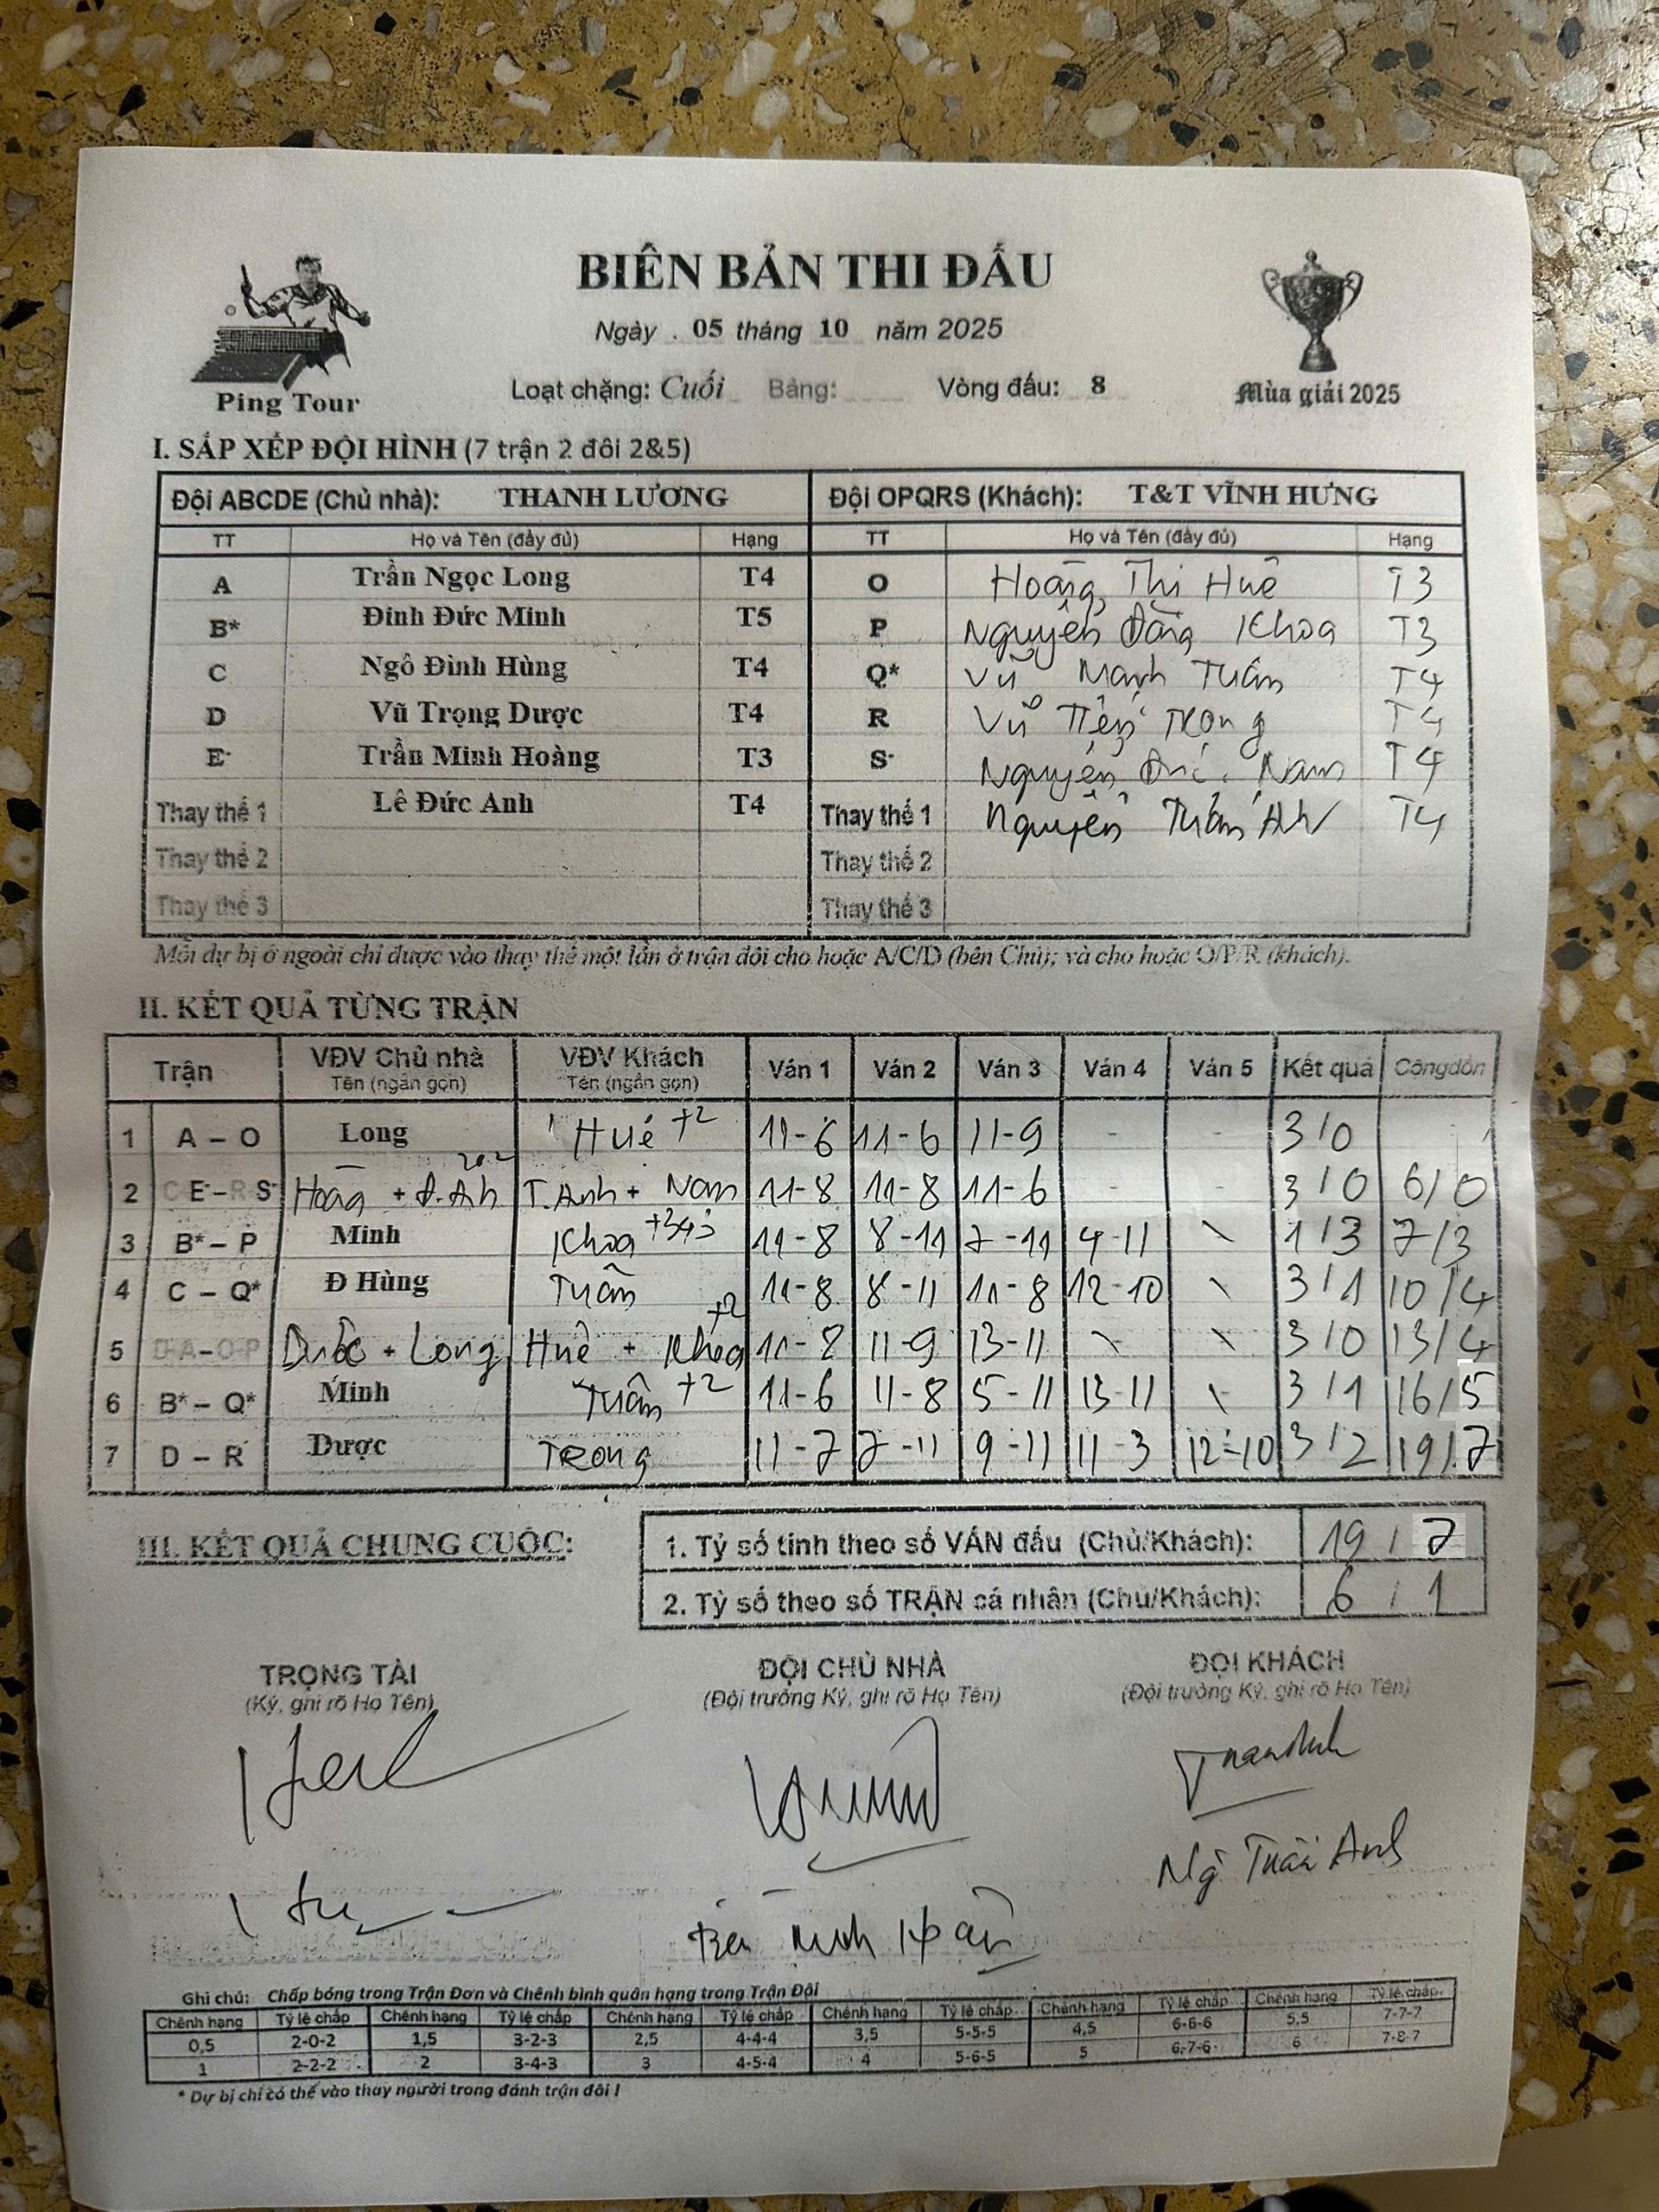 BIÊN BẢN THI ĐẤU
Ngày . 05 tháng 10 năm 2025
Loạt chặng: Cuối Bảng: Vòng đấu: 8
Ping Tour
Mùa giải 2025
I. SẮP XẾP ĐỘI HÌNH (7 trận 2 đôi 2&5)
Đội ABCDE (Chủ nhà): THANH LƯƠNG Đội OPQRS (Khách): T&T VĨNH HƯNG
TT Họ và Tên (đầy đủ) Hạng TT Họ và Tên (đầy đủ) Hạng
A Trần Ngọc Long T4 O Hoàng Thị Huê T3
B* Đinh Đức Minh T5 P Nguyễn Đăng Khoa T3
C Ngô Đình Hùng T4 Q* Vũ Mạnh Tuân T4
D Vũ Trọng Dược T4 R Vũ Tiến Trọng T4
E- Trần Minh Hoàng T3 S- Nguyễn Đức Nam T4
Thay thế 1 Lê Đức Anh T4 Thay thế 1 Nguyễn Tuấn Anh T4
Thay thế 2 Thay thế 2
Thay thế 3 Thay thế 3
Mỗi dự bị ở ngoài chỉ được vào thay thế một lần ở trận đôi cho hoặc A/C/D (bên Chủ); và cho hoặc O/P/R (khách).
II. KẾT QUẢ TỪNG TRẬN
Trận VĐV Chủ nhà VĐV Khách Ván 1 Ván 2 Ván 3 Ván 4 Ván 5 Kết quả Cộngdồn
Tên (ngắn gọn) Tên (ngắn gọn)
1 A – O Long Huê +2 11-6 11-6 11-9 - - 3/0
2 C E- – R S- Hoàg + Đ.Anh 202 T.Anh + Nam 11-8 11-8 11-6 - - 3/0 6/0
3 B* – P Minh Khoa +343 11-8 8-11 7-11 4-11 \ 1/3 7/3
4 C – Q* Đ Hùng Tuân 11-8 8-11 11-8 12-10 \ 3/1 10/4
5 D-A – O-P Dược + Long Huê + Khoa +2 11-8 11-9 13-11 \ \ 3/0 13/4
6 B* – Q* Minh Tuân +2 11-6 11-8 5-11 13-11 \ 3/1 16/5
7 D – R Dược Trọng 11-7 7-11 9-11 11-3 12-10 3/2 19/7
III. KẾT QUẢ CHUNG CUỘC:
1. Tỷ số tính theo số VÁN đấu (Chủ/Khách): 19 / 7
2. Tỷ số theo số TRẬN cá nhân (Chủ/Khách): 6 / 1
TRỌNG TÀI ĐỘI CHỦ NHÀ ĐỘI KHÁCH
(Ký, ghi rõ Họ Tên) (Đội trưởng Ký, ghi rõ Họ Tên) (Đội trưởng Ký, ghi rõ Họ Tên)
Ng Tuấn Anh
Ghi chú: Chấp bóng trong Trận Đơn và Chênh bình quân hạng trong Trận Đôi
Chênh hạng Tỷ lệ chấp Chênh hạng Tỷ lệ chấp Chênh hạng Tỷ lệ chấp Chênh hạng Tỷ lệ chấp Chênh hạng Tỷ lệ chấp Chênh hạng Tỷ lệ chấp
0,5 2-0-2 1,5 3-2-3 2,5 4-4-4 3,5 5-5-5 4,5 6-6-6 5,5 7-7-7
1 2-2-2 2 3-4-3 3 4-5-4 4 5-6-5 5 6-7-6 6 7-8-7
* Dự bị chỉ có thể vào thay người trong đánh trận đôi !